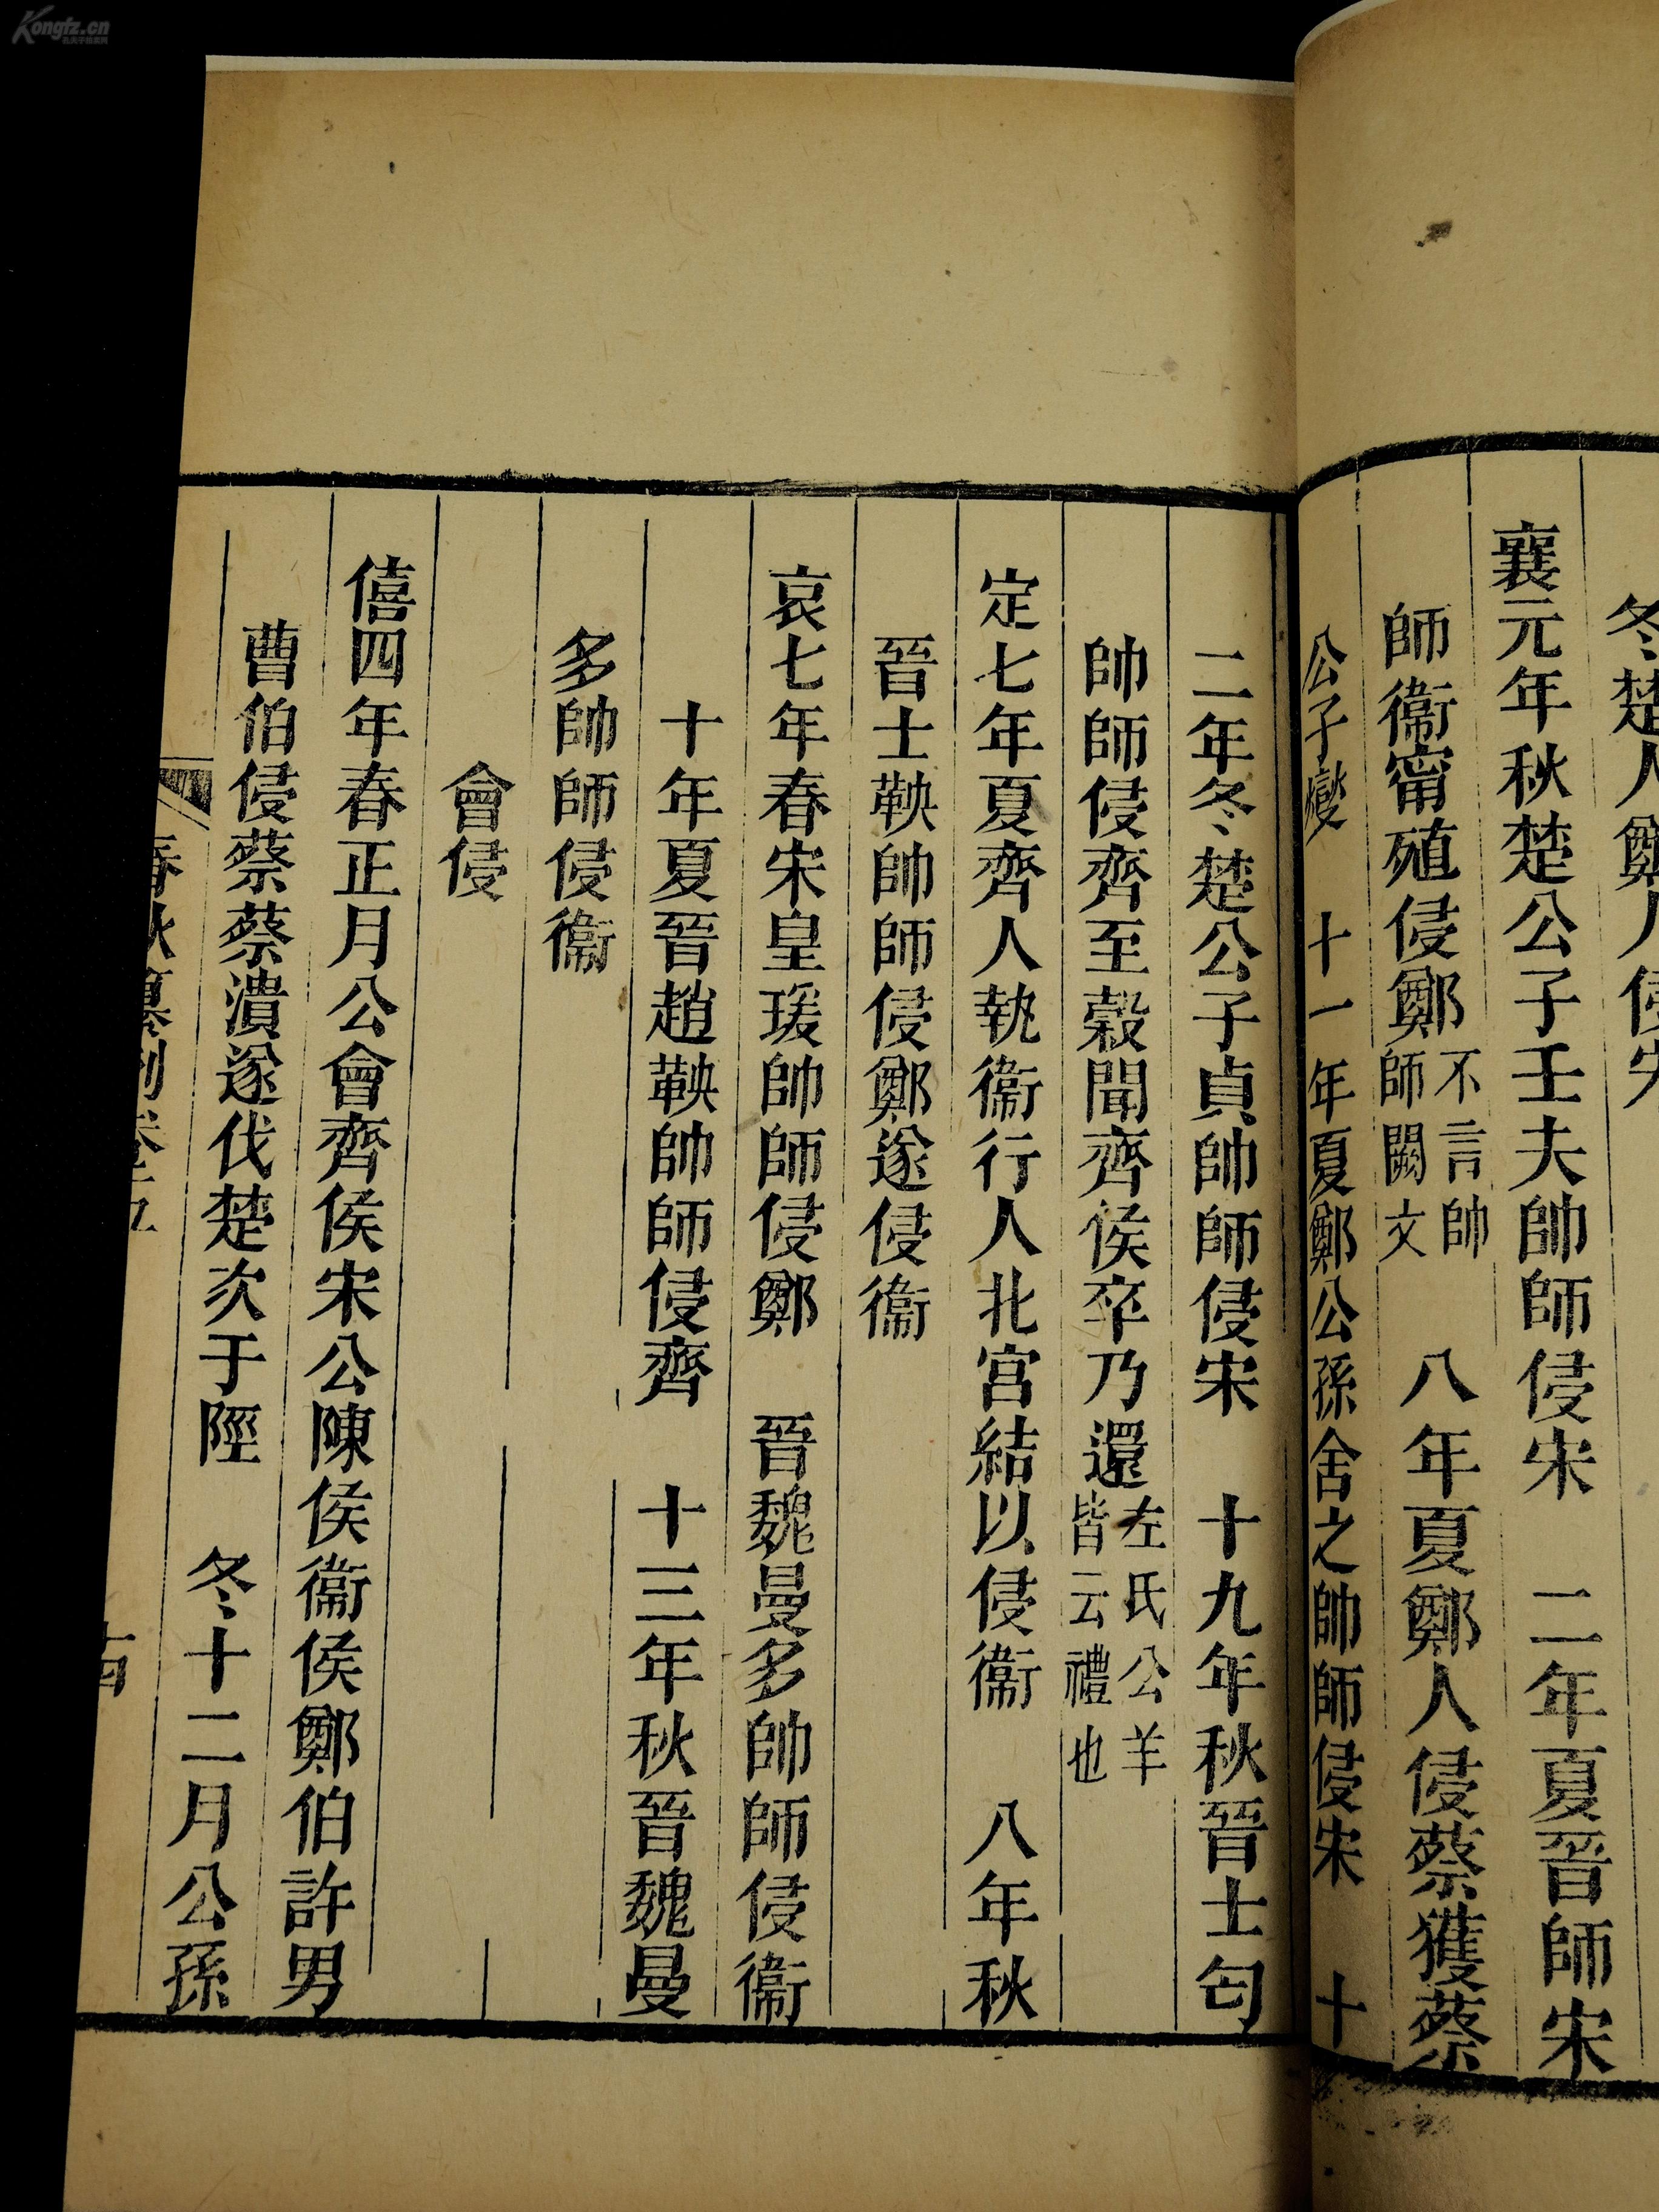 Kongfz.cn
冬楚人鄭人侵宋
襄元年秋楚公子壬夫帥師侵宋 二年夏晉師宋
師衞甯殖侵鄭不言帥師闕文 八年夏鄭人侵蔡獲蔡
公子燮 十一年夏鄭公孫舍之帥師侵宋 十
二年冬楚公子貞帥師侵宋 十九年秋晉士匄
帥師侵齊至榖聞齊侯卒乃還左氏公羊皆云禮也
定七年夏齊人執衞行人北宮結以侵衞 八年秋
晉士鞅帥師侵鄭遂侵衞
哀七年春宋皇瑗帥師侵鄭 晉魏曼多帥師侵衞
十年夏晉趙鞅帥師侵齊 十三年秋晉魏曼
多帥師侵衞
會侵
僖四年春正月公會齊侯宋公陳侯衞侯鄭伯許男
曹伯侵蔡蔡潰遂伐楚次于陘 冬十二月公孫
春秋